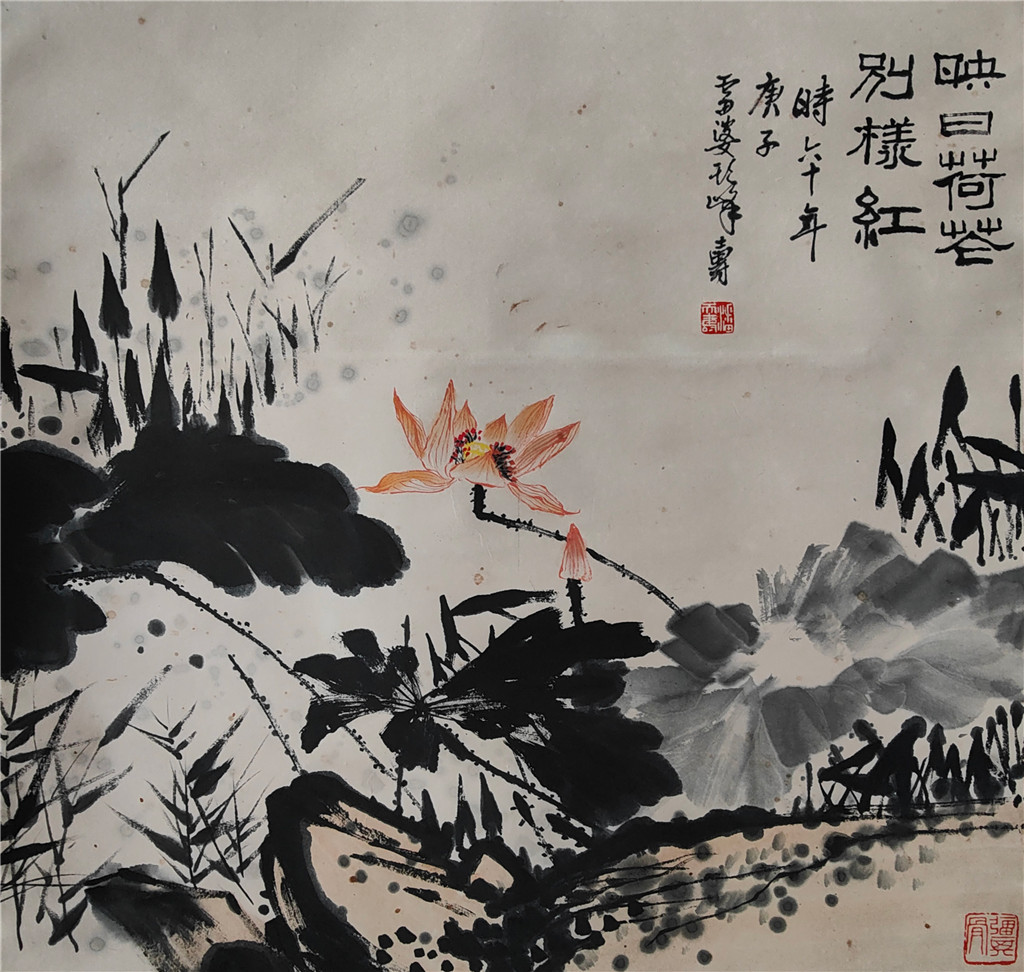 映日荷花
別樣紅
時六十年
庚子
雷婆頭峰壽
彊其骨